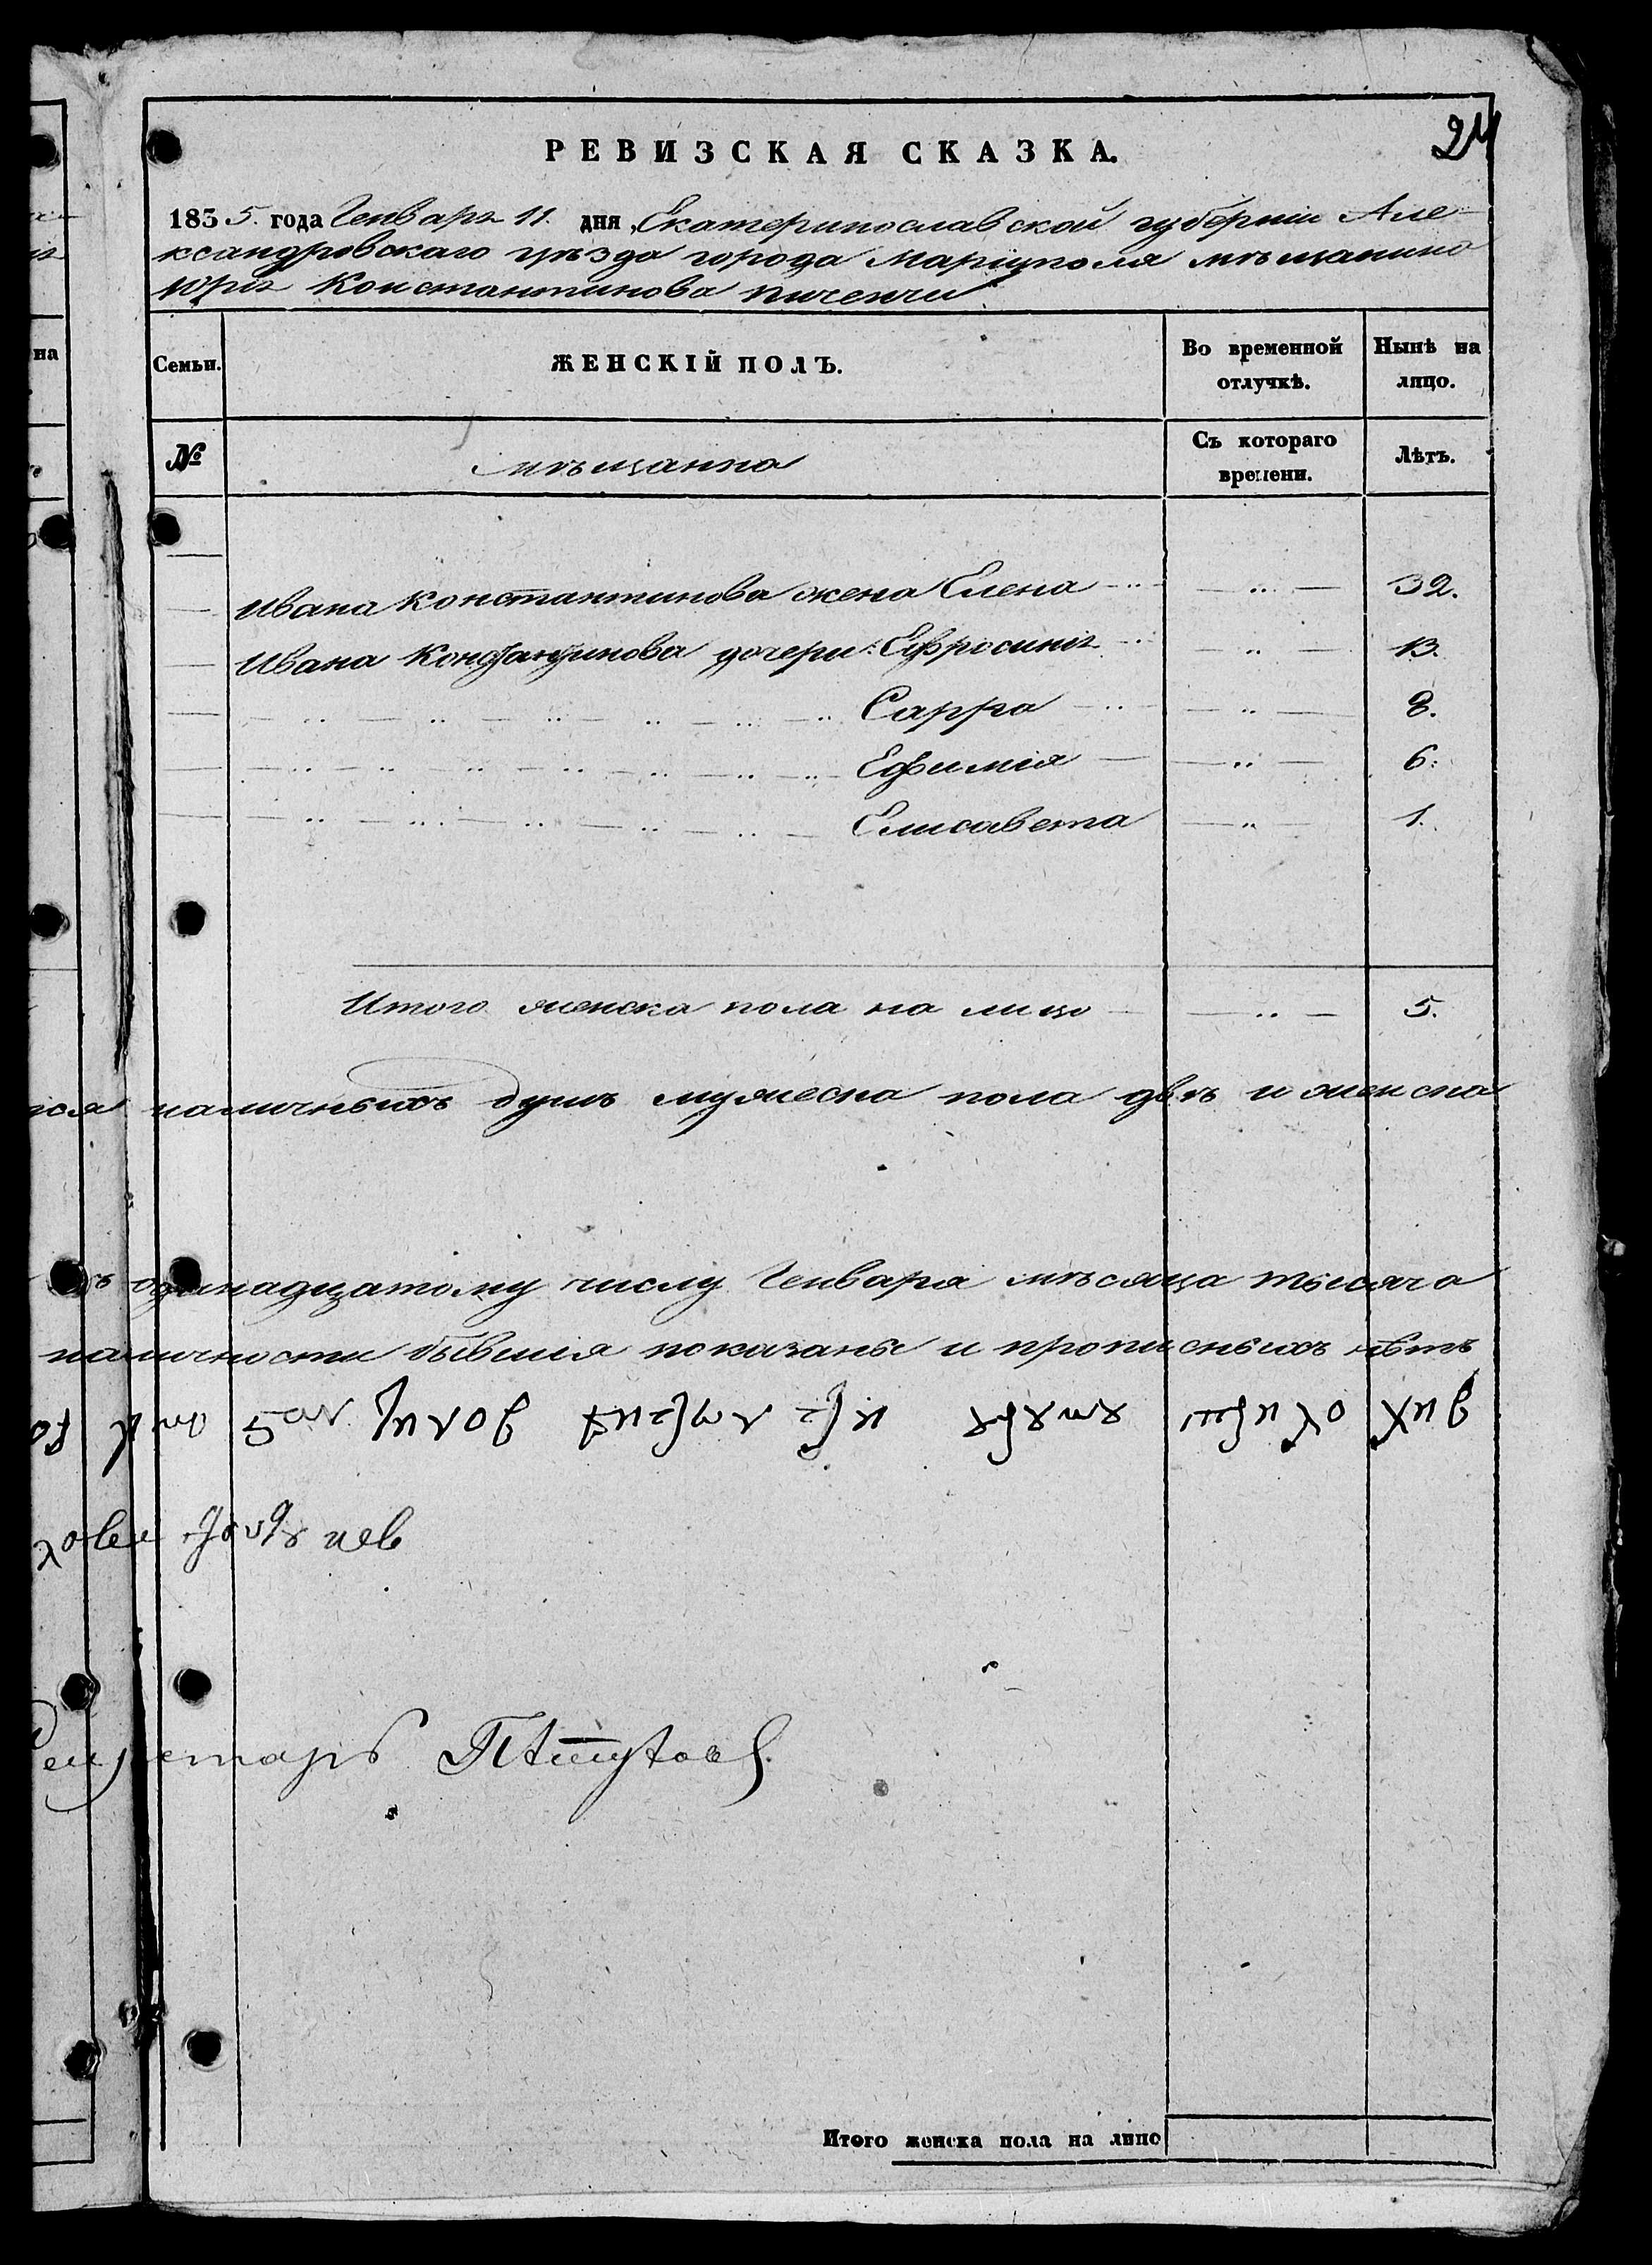 РЕВИЗСКАЯ СКАЗКА.
24
1835. года Генваря 11. дня, Екатеринославской губернии Але-
ксандровскаго уѣзда города Маріуполя мѣщанина
Юрія Константинова Пиченчи
Семьи.
ЖЕНСКІЙ ПОЛЪ.
Во временной отлучкѣ.
Нынѣ на лицо.
№
мѣщанка
Съ котораго времени.
Лѣтъ.
Ивана Константинова жена Елена 32.
Ивана Константинова дочери: Ефросинія 13.
Сарра 8.
Ефимія 6.
Елисавета 1.
Итого женска пола на лицо 5.
наличныхъ душъ мужеска пола двѣ и женска
одинадцатому числу Генваря мѣсяца тысяча
наличности бывшія показаны и прописныхъ нѣтъ
Секретарь
Итого женска пола на лицо